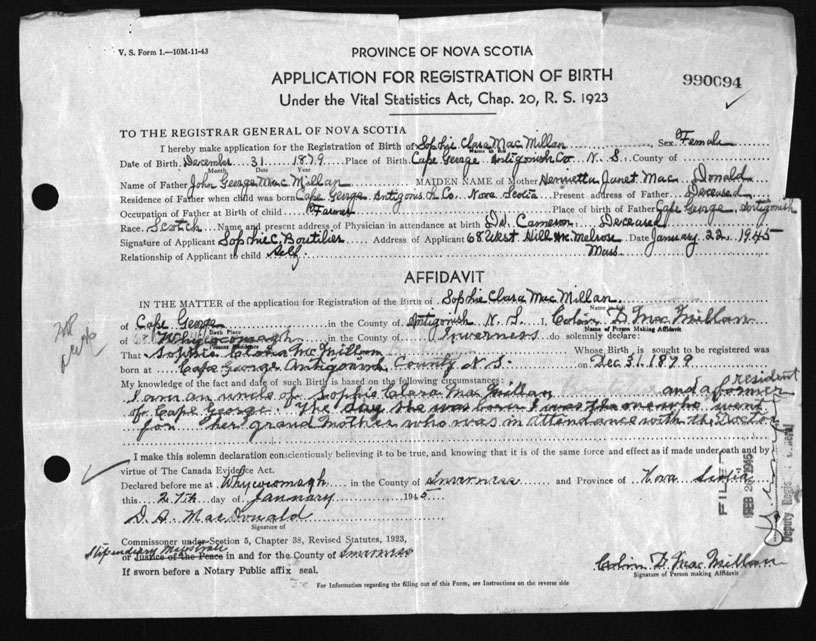 V. S. Form 1.—10M-11-43
PROVINCE OF NOVA SCOTIA
APPLICATION FOR REGISTRATION OF BIRTH
990694
Under the Vital Statistics Act, Chap. 20, R. S. 1923
TO THE REGISTRAR GENERAL OF NOVA SCOTIA
I hereby make application for the Registration of Birth of Sophie Clara MacMillan Sex Female
Name in full
Date of Birth December 31 1879 Place of Birth Cape George Antigonish Co N. S. County of
Month Date Year
Name of Father John George MacMillan MAIDEN NAME of Mother Henrietta Janet MacDonald
Residence of Father when child was born Cape George Antigonish Co. Nova Scotia Present address of Father Deceased
Occupation of Father at Birth of child Farmer Place of birth of Father Cape George, Antigonish
Race Scotch Name and present address of Physician in attendance at birth Dr. Cameron Deceased
Signature of Applicant Sophie C. Boutilier Address of Applicant 68 West Hill Ave. Melrose Date January 22 1945
Relationship of Applicant to child Self Mass.
AFFIDAVIT
IN THE MATTER of the application for Registration of the Birth of Sophie Clara MacMillan
Name in full
of Cape George in the County of Antigonish N. S. I, Colin D. MacMillan
Birth Place
Name of Person Making Affidavit
of Whycocomagh in the County of Inverness do solemnly declare:
Residence
That Sophie Clara McMillan Whose Birth is sought to be registered was
born at Cape George Antigonish County N. S. on Dec 31 1879
My knowledge of the fact and date of such Birth is based on the following circumstances:
I am an uncle of Sophie Clara MacMillan and a former resident
of Cape George. The day she was born I was the one who went
for her grand mother who was in attendance with the Doctor
I make this solemn declaration conscientiously believing it to be true, and knowing that it is of the same force and effect as if made under oath and by
virtue of The Canada Evidence Act.
Declared before me at Whycocomagh in the County of Inverness and Province of Nova Scotia
this 27th day of January 1945
D. A. MacDonald
Signature of
Commissioner under Section 5, Chapter 38, Revised Statutes, 1923,
Stipendiary Magistrate
or Justice of the Peace in and for the County of Inverness
If sworn before a Notary Public affix seal.
Colin D. MacMillan
Signature of Person making Affidavit
For Information regarding the filling out of this Form, see Instructions on the reverse side
FILED
FEB 2 1945
Deputy Registrar General